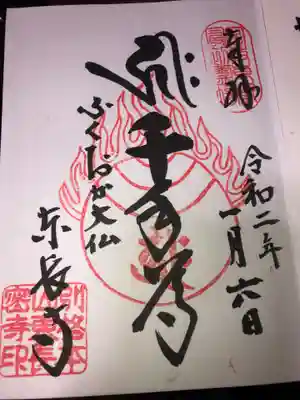 奉拝
令和二年
一月六日
千手尊
ふくおか大仏
東長寺